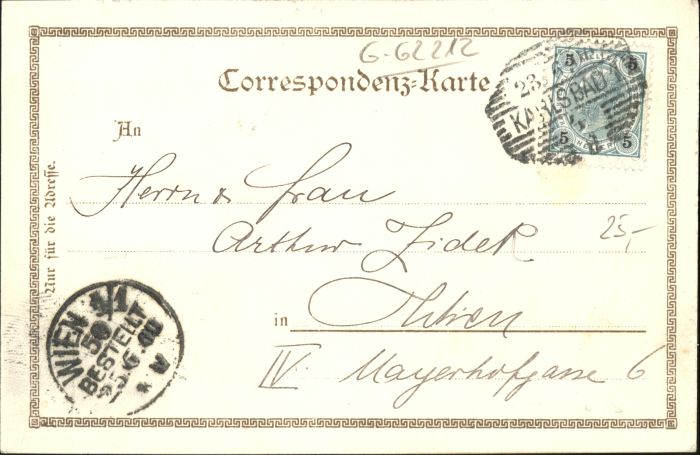 G-62212
Correspondenz-Karte
5 5
5 5
23
KARLSBAD
An
Herrn & Frau
Arthur Zidek
25,-
in Wien
IV Mayerhofgasse 6
Nur für die Adresse.
WIEN 4/1
50
BESTELLT